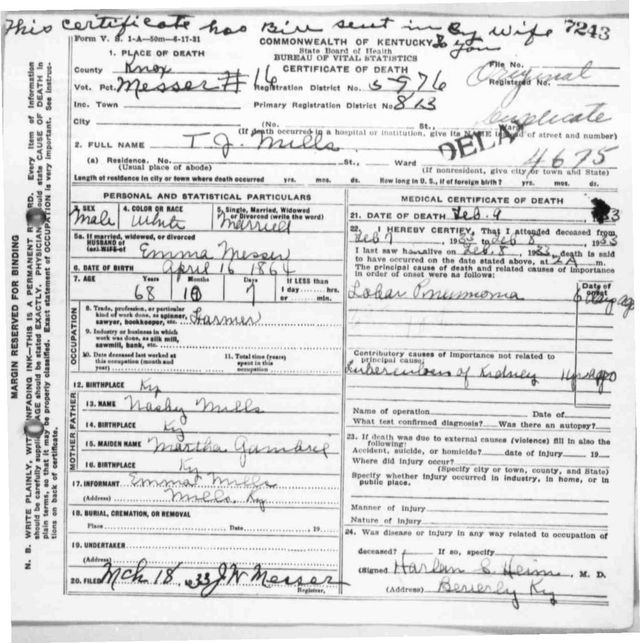 This certificate has Bin sent in By Wife 7243
to you
Form V. S. 1-A—50m—6-17-31
COMMONWEALTH OF KENTUCKY
State Board of Health
BUREAU OF VITAL STATISTICS
CERTIFICATE OF DEATH
1. PLACE OF DEATH
County Knox
File No.
Registered No.
Original
Vot. Pct. Messer # 16
Registration District No. 5976
Inc. Town
Primary Registration District No. 813
Duplicate
City
(No. St., Ward)
(If death occurred in a hospital or institution, give its NAME instead of street and number)
DELA
2. FULL NAME T. J. Mills
4675
(a) Residence. No. St., Ward
(Usual place of abode)
(If nonresident, give city or town and State)
Length of residence in city or town where death occurred yrs. mos. ds. How long in U. S., if of foreign birth? yrs. mos. ds.
MARGIN RESERVED FOR BINDING
N. B. WRITE PLAINLY, WITH UNFADING INK—THIS IS A PERMANENT RECORD. Every item of information
should be carefully supplied. AGE should be stated EXACTLY. PHYSICIANS should state CAUSE OF DEATH in
plain terms, so that it may be properly classified. Exact statement of OCCUPATION is very important. See instruc-
tions on back of certificate.
PERSONAL AND STATISTICAL PARTICULARS
3. SEX Male
4. COLOR OR RACE White
5. Single, Married, Widowed
or Divorced (write the word) Married
5a. If married, widowed, or divorced
HUSBAND of
(or) WIFE of Emma Messer
6. DATE OF BIRTH April 16 1864
7. AGE Years Months Days
68 10 7
If LESS than
1 day hrs.
or min.
OCCUPATION
8. Trade, profession, or particular
kind of work done, as spinner,
sawyer, bookkeeper, etc. Farmer
9. Industry or business in which
work was done, as silk mill,
sawmill, bank, etc.
10. Date deceased last worked at
this occupation (month and
year)
11. Total time (years)
spent in this
occupation
12. BIRTHPLACE Ky
MOTHER FATHER
13. NAME Nasby Mills
14. BIRTHPLACE Ky
15. MAIDEN NAME Martha Gambrel
16. BIRTHPLACE Ky
17. INFORMANT Emma Mills
(Address) Mills, Ky
18. BURIAL, CREMATION, OR REMOVAL
Place Date , 19
19. UNDERTAKER
(Address)
20. FILED Mch 18, 1933 J W Messer
Registrar.
MEDICAL CERTIFICATE OF DEATH
21. DATE OF DEATH Feb. 9
22. I HEREBY CERTIFY, That I attended deceased from
Feb 7, 1933, to Feb 8, 1933
I last saw h alive on Feb, 8, 1933, death is said
to have occurred on the date stated above, at A m.
The principal cause of death and related causes of importance
in order of onset were as follows:
Date of
onset
Lobar Pneumonia 6 days ago
Contributory causes of importance not related to
principal cause:
Tuberculosis of Kidney
Name of operation Date of
What test confirmed diagnosis? Was there an autopsy?
23. If death was due to external causes (violence) fill in also the
following:
Accident, suicide, or homicide? date of injury , 19
Where did injury occur?
(Specify city or town, county, and State)
Specify whether injury occurred in industry, in home, or in
public place.
Manner of Injury
Nature of Injury
24. Was disease or injury in any way related to occupation of
deceased? If so, specify
(Signed Harlan S. Heim, M. D.
(Address) Beverly Ky